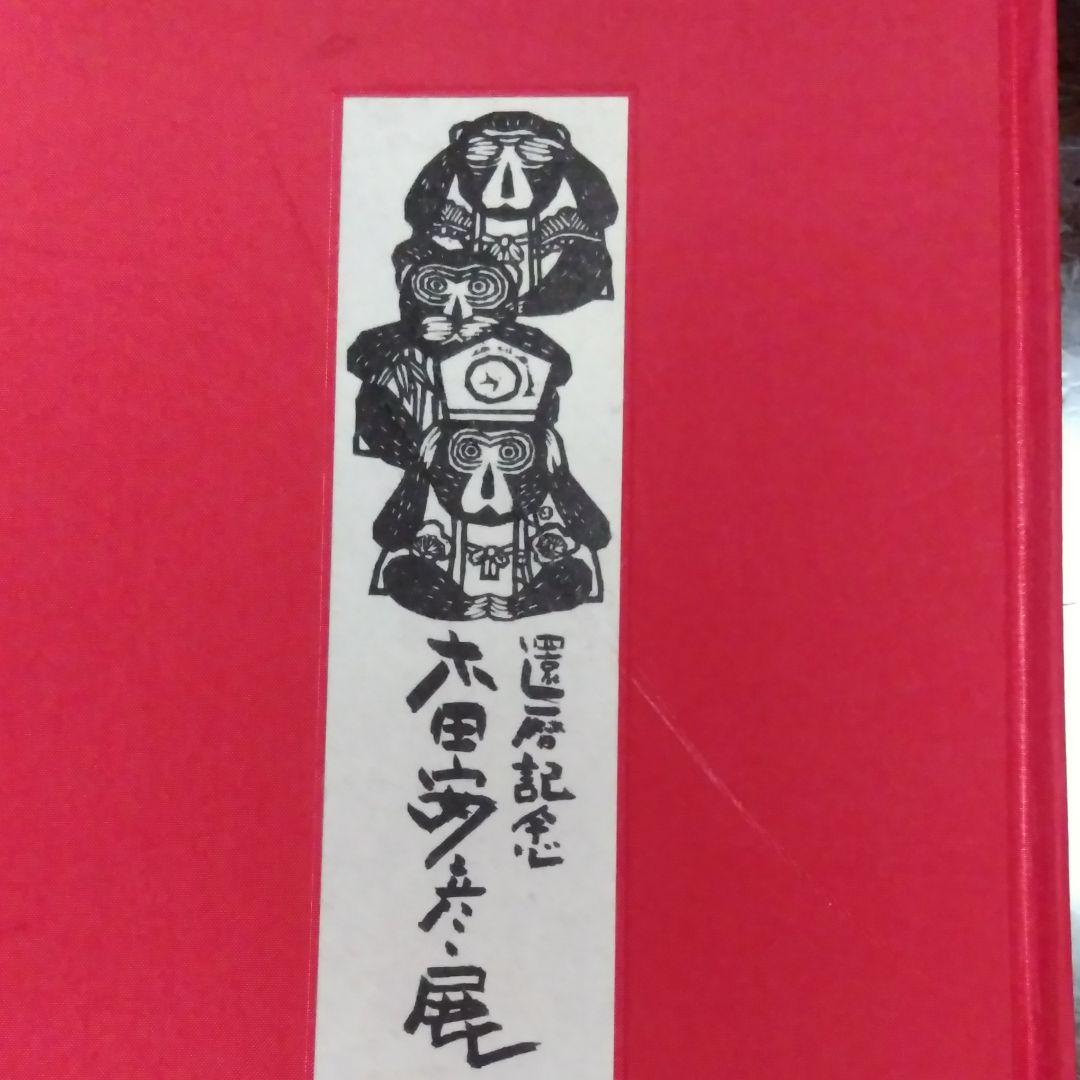 還暦記念
木田安彦・展